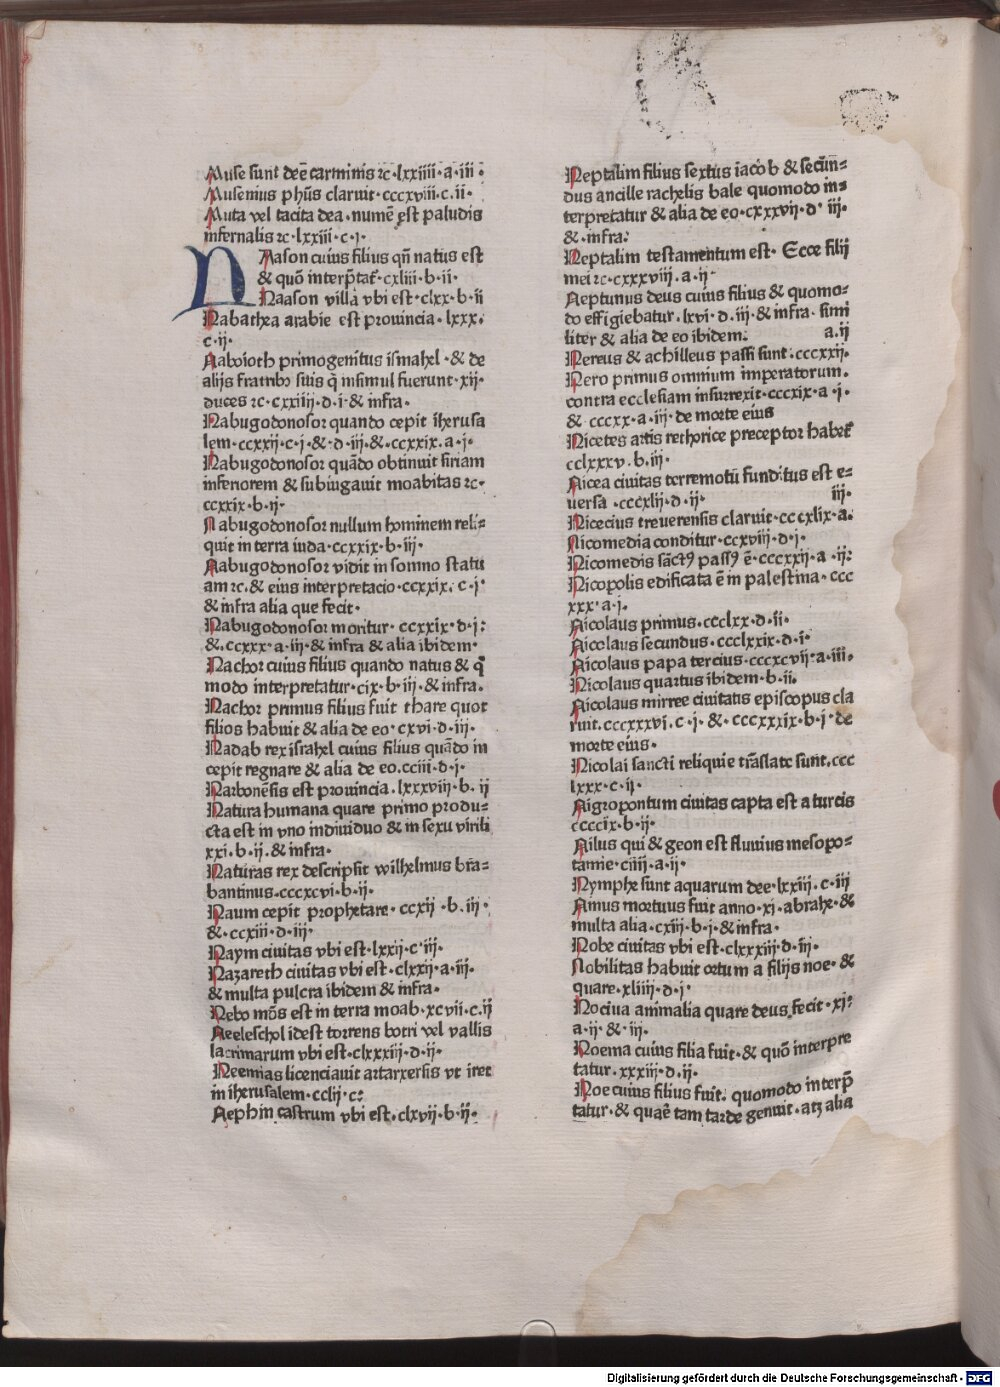 Muse sunt deē carminis ⁊c·lxxiiii·a·iii·
Musemius ph̄us claruit·cccxviii·c·ii·
Muta vel tacita dea·numē est paludis
infernalis ⁊c·lxxiii·c·i·
NAason cuius filius qn̄ natus est
& quō interp̄tat᷑·cxliii·b·ii·
Naason villa vbi est·clxx·b·ii
Nabathea arabie est prouincia·lxxx.
c·ij·
Naboioth primogenitus ismahel·& de
alijs fratribꝰ suis q̄ insimul fuerunt·xij·
duces ⁊c·cxxiiij·d·i·& infra·
Nabugodonosor quando cepit iherusa
lem·ccxxij·c·j·&·d·iij·&·ccxxix.a·j·
Nabugodonosor quādo obtinuit siriam
inferiorem & subiugauit moabitas ⁊c·
ccxxix·b·ij·
Nabugodonosor nullum hominem reli-
quit in terra iuda·ccxxix·b·iij·
Nabugodonosor vidit in somno statu
am ⁊c.& eius interpretacio·ccxxix·c·j·
& infra alia que fecit·
Nabugodonosor moritur·ccxxix·d·j:
&.ccxxx·a·ij·& infra & alia ibidem·
Nachor cuius filius quando natus & qͦ
modo interpretatur·cix·b·iij·& infra.
Nachor primus filius fuit thare quot
filios habuit & alia de eo·cxvi·d·iij·
Nadab rex israhel cuius filius quādo in
cepit regnare & alia de eo.cciii·d·j·
Narbonēsis est prouincia.lxxxviij·b.ij
Natura humana quare primo produ-
cta est in vno indiuiduo & in sexu virili
xxi.b·ij.& infra·
Naturas rex descripsit wilhelmus bra-
bantinus.cccxcvi·b·ij·
Naum cepit prophetare·ccxij·b.iij·
&·ccxiii·d·iij·
Naym ciuitas vbi est·lxxij·c·iij·
Nazareth ciuitas vbi est·clxxij·a·iij·
& multa pulcra ibidem & infra·
Nebo mōs est in terra moab·xcvii·c.ij
Neeleschol idest torrens botri vel vallis
lacrimarum vbi est·clxxxiij·d·ij·
Neemias licenciauit artarxersis vt iret
in iherusalem·cclij·c:
Nephin castrum vbi est·clxvij·b·ij·
Neptalim filius sextus iacob & secūn-
dus ancille rachelis bale quomodo in-
terpretatur & alia de eo·cxxxvij·d·iij·
&·infra:
Neptalim testamentum est·Ecce filij
mei ⁊c·cxxxviij.a·ij·
Neptunus deus cuius filius & quomo-
do effigiebatur·lxvi·d.iij·& infra·simi
liter & alia de eo ibidem: a.ij
Nereus & achilleus passi sunt·cccxxij·
Nero primus omnium imperatorum.
contra ecclesiam insurrexit·cccxix·a·j·
&·cccxx·a·iij·de morte eius
Nicetes artis rethorice preceptor habet᷑
cclxxxv·b.iij·
Nicea ciuitas terremotū funditus est e-
uersa·cccxlij·d·ij· iij·
Nicecius treuerensis claruit·cccxlix·a.
Nicomedia conditur·ccxviij·d·j·
Nicomedis sāctꝰ passꝰ ē·cccxxij·a·ij:
Nicopolis edificata ē in palestina·ccc
xxx·a·j.
Nicolaus primus·ccclxx·d·ij·
Nicolaus secundus·ccclxxix·d·i·
Nicolaus papa tercius·cccxcvij·a·iij.
Nicolaus quartus ibidem·b·ij.
Nicolaus mirree ciuitatis episcopus cla
ruit.cccxxxvi·c·j·&·cccxxxix·b·j·de
morte eius·
Nicolai sancti reliquie trāslate sunt.ccc
lxxx·c·ij·
Nigropontum ciuitas capta est a turcis
ccccix·b·ij·
Nilus qui & geon est fluuius mesopo-
tamie·ciiij·a·ij·
Nymphe sunt aquarum dee·lxxiij·c·iij
Ninus mortuus fuit anno·xj·abrahe·&
multa alia·cxiij·b·j·& infra·
Nobe ciuitas vbi est·clxxxiij·d·ij·
Nobilitas habuit ortum a filijs noe·&
quare·xliiij·d·j·
Nociua animalia quare deus fecit·xj:
a·ij·&·iij·
Noema cuius filia fuit·& quō interpre
tatur·xxxiij·d·ij·
Noe cuius filius fuit·quomodo interp̄
tatur·& quaē tam tarde genuit·atꝫ alia
Digitalisierung gefördert durch die Deutsche Forschungsgemeinschaft - DFG